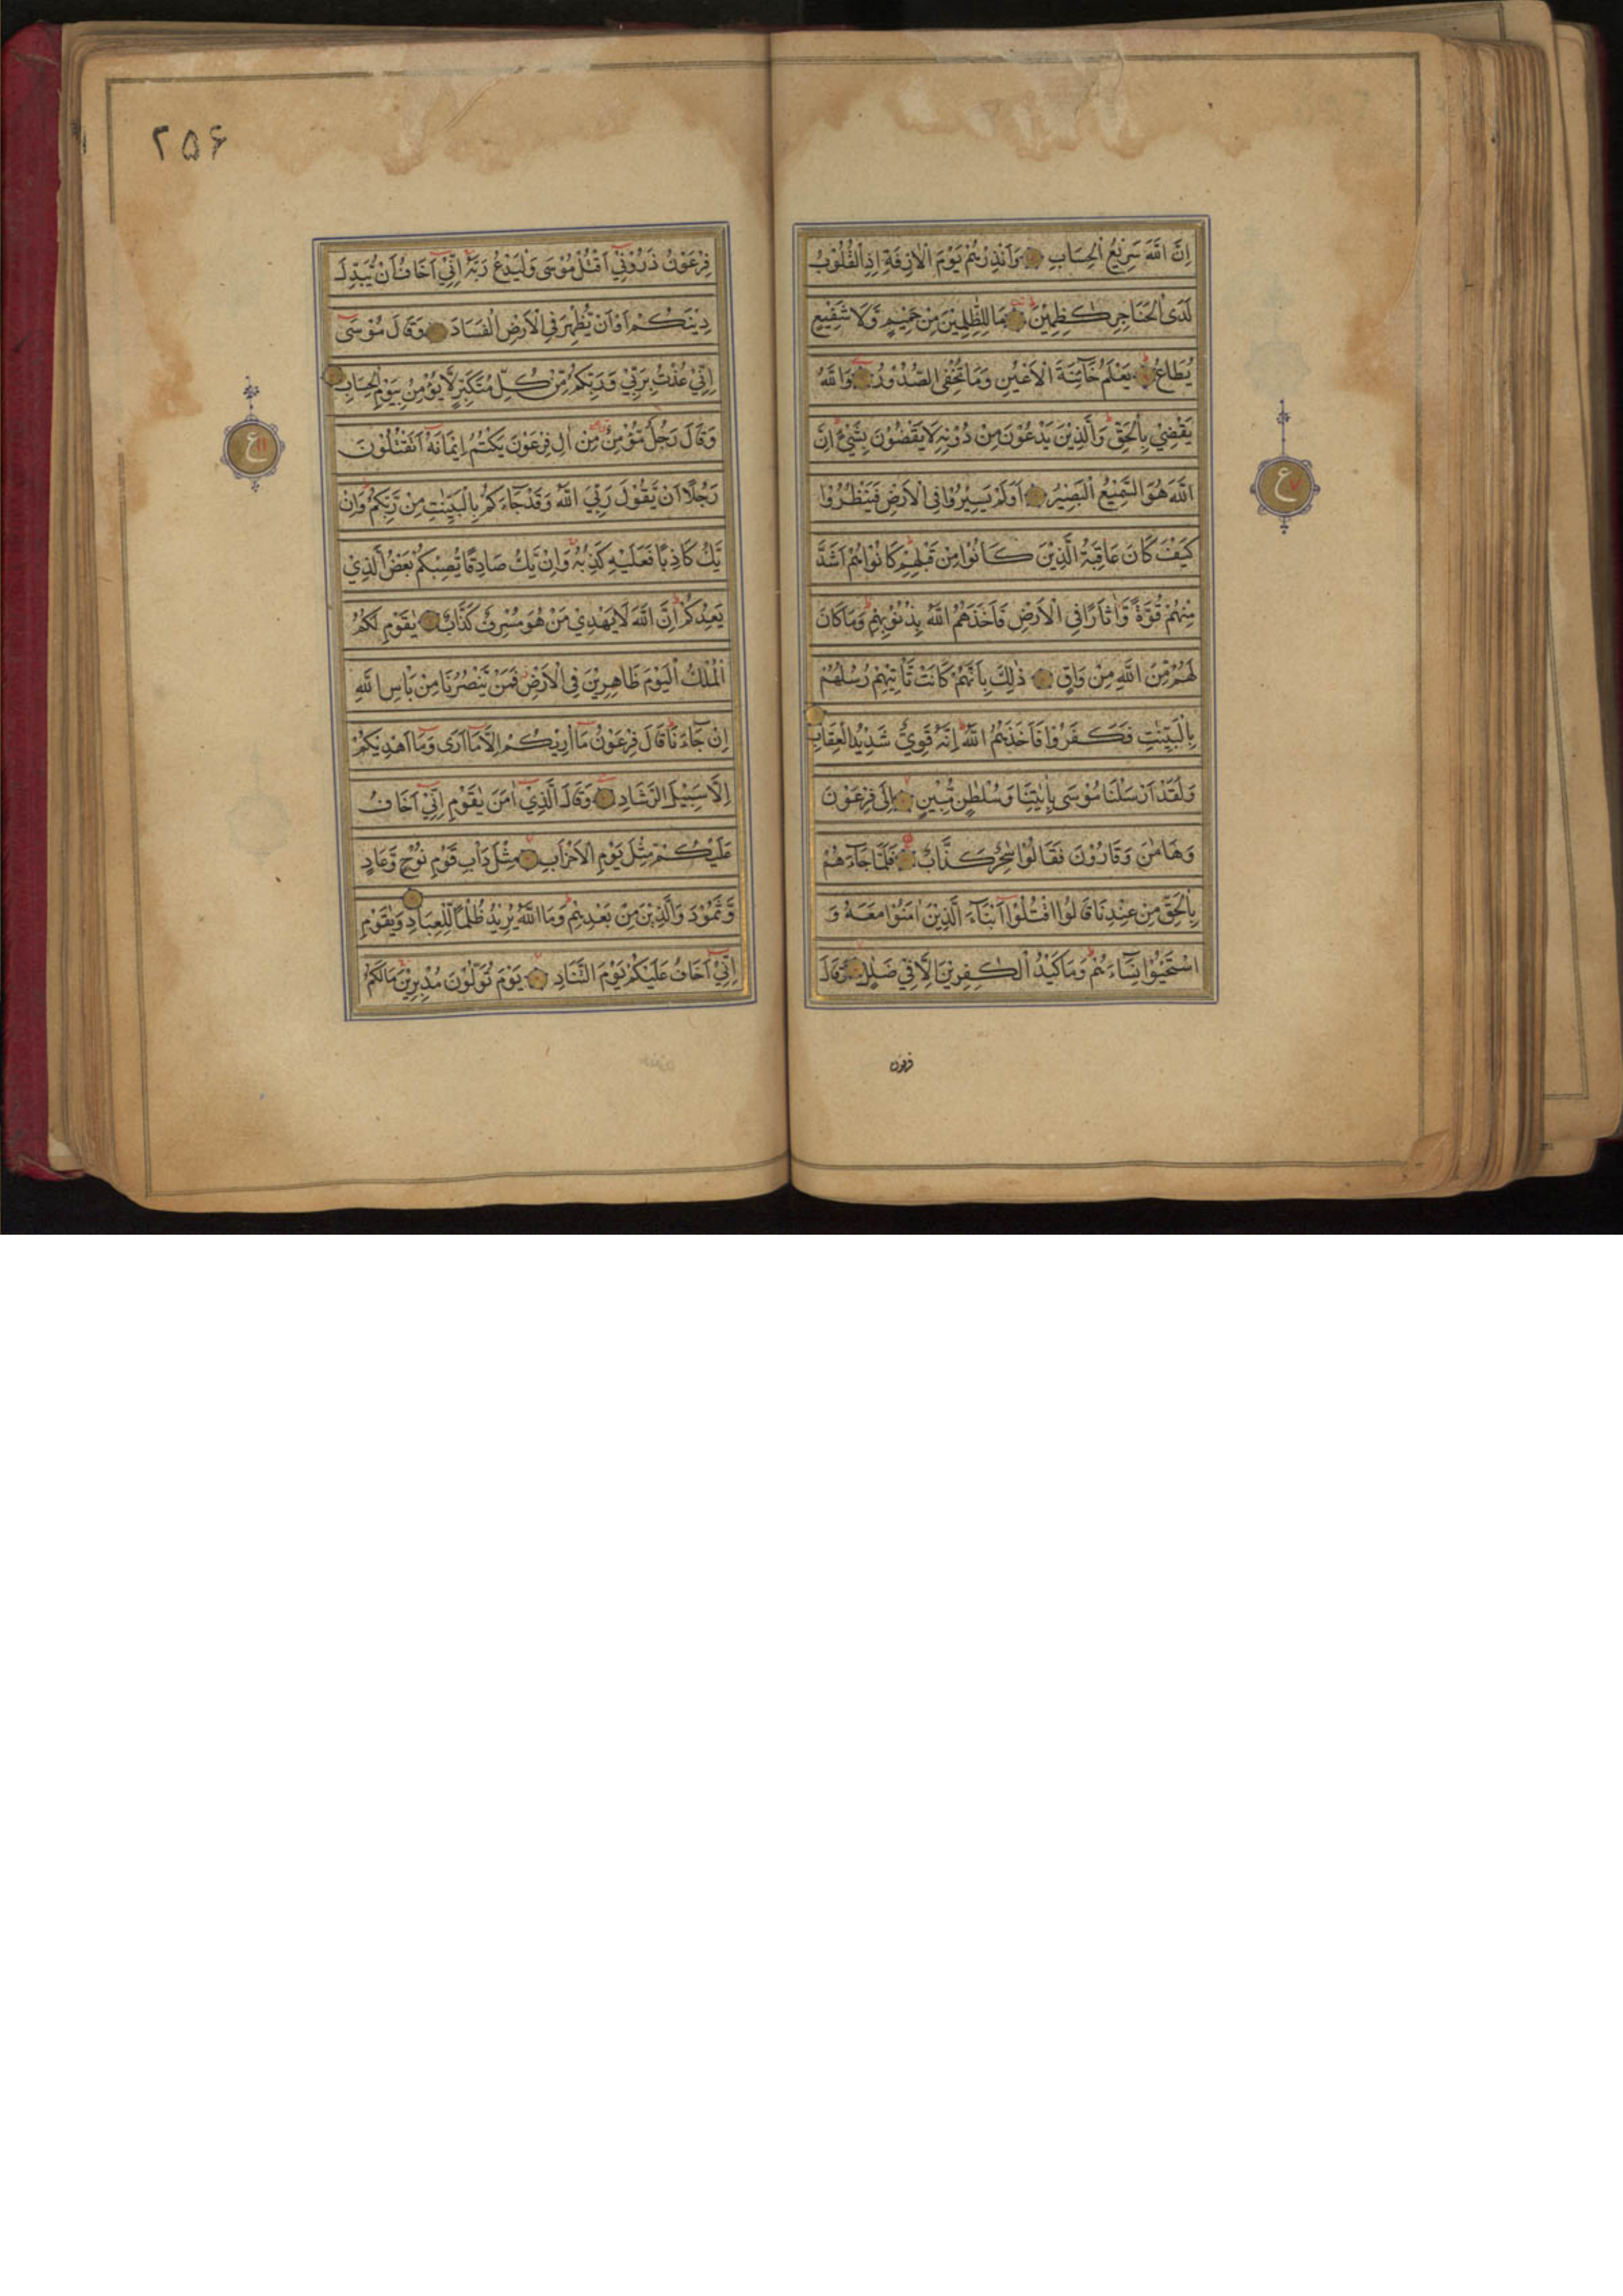 اِنَّ اللّٰهَ سَرِيْعُ الْحِسَابِ وَاَنْذِرْهُمْ يَوْمَ الْاٰزِفَةِ اِذِ الْقُلُوْبُ
لَدَى الْحَنَاجِرِ كٰظِمِيْنَ مَا لِلظّٰلِمِيْنَ مِنْ حَمِيْمٍ وَّلَا شَفِيْعٍ
يُّطَاعُ يَعْلَمُ خَآئِنَةَ الْاَعْيُنِ وَمَا تُخْفِى الصُّدُوْرُ وَاللّٰهُ
يَقْضِيْ بِالْحَقِّ وَالَّذِيْنَ يَدْعُوْنَ مِنْ دُوْنِهٖ لَا يَقْضُوْنَ بِشَيْءٍ اِنَّ
اللّٰهَ هُوَ السَّمِيْعُ الْبَصِيْرُ اَوَلَمْ يَسِيْرُوْا فِى الْاَرْضِ فَيَنْظُرُوْا
كَيْفَ كَانَ عَاقِبَةُ الَّذِيْنَ كَانُوْا مِنْ قَبْلِهِمْ كَانُوْا هُمْ اَشَدَّ
مِنْهُمْ قُوَّةً وَّاٰثَارًا فِى الْاَرْضِ فَاَخَذَهُمُ اللّٰهُ بِذُنُوْبِهِمْ وَمَا كَانَ
لَهُمْ مِّنَ اللّٰهِ مِنْ وَّاقٍ ذٰلِكَ بِاَنَّهُمْ كَانَتْ تَّاْتِيْهِمْ رُسُلُهُمْ
بِالْبَيِّنٰتِ فَكَفَرُوْا فَاَخَذَهُمُ اللّٰهُ اِنَّهٗ قَوِيٌّ شَدِيْدُ الْعِقَابِ
وَلَقَدْ اَرْسَلْنَا مُوْسٰى بِاٰيٰتِنَا وَسُلْطٰنٍ مُّبِيْنٍ اِلٰى فِرْعَوْنَ
وَهَامٰنَ وَقَارُوْنَ فَقَالُوْا سٰحِرٌ كَذَّابٌ فَلَمَّا جَآءَهُمْ
بِالْحَقِّ مِنْ عِنْدِنَا قَالُوا اقْتُلُوْٓا اَبْنَآءَ الَّذِيْنَ اٰمَنُوْا مَعَهٗ وَ
اسْتَحْيُوْا نِسَآءَهُمْ وَمَا كَيْدُ الْكٰفِرِيْنَ اِلَّا فِيْ ضَلٰلٍ وَقَالَ
فرعون
ع
٢٥۶
فِرْعَوْنُ ذَرُوْنِيْٓ اَقْتُلْ مُوْسٰى وَلْيَدْعُ رَبَّهٗ اِنِّيْٓ اَخَافُ اَنْ يُّبَدِّلَ
دِيْنَكُمْ اَوْ اَنْ يُّظْهِرَ فِى الْاَرْضِ الْفَسَادَ وَقَالَ مُوْسٰٓى
اِنِّيْ عُذْتُ بِرَبِّيْ وَرَبِّكُمْ مِّنْ كُلِّ مُتَكَبِّرٍ لَّا يُؤْمِنُ بِيَوْمِ الْحِسَابِ
وَقَالَ رَجُلٌ مُّؤْمِنٌ مِّنْ اٰلِ فِرْعَوْنَ يَكْتُمُ اِيْمَانَهٗٓ اَتَقْتُلُوْنَ
رَجُلًا اَنْ يَّقُوْلَ رَبِّيَ اللّٰهُ وَقَدْ جَآءَكُمْ بِالْبَيِّنٰتِ مِنْ رَّبِّكُمْ وَاِنْ
يَّكُ كَاذِبًا فَعَلَيْهِ كَذِبُهٗ وَاِنْ يَّكُ صَادِقًا يُّصِبْكُمْ بَعْضُ الَّذِيْ
يَعِدُكُمْ اِنَّ اللّٰهَ لَا يَهْدِيْ مَنْ هُوَ مُسْرِفٌ كَذَّابٌ يٰقَوْمِ لَكُمُ
الْمُلْكُ الْيَوْمَ ظَاهِرِيْنَ فِى الْاَرْضِ فَمَنْ يَّنْصُرُنَا مِنْ بَاْسِ اللّٰهِ
اِنْ جَآءَنَا قَالَ فِرْعَوْنُ مَآ اُرِيْكُمْ اِلَّا مَآ اَرٰى وَمَآ اَهْدِيْكُمْ
اِلَّا سَبِيْلَ الرَّشَادِ وَقَالَ الَّذِيْٓ اٰمَنَ يٰقَوْمِ اِنِّيْٓ اَخَافُ
عَلَيْكُمْ مِّثْلَ يَوْمِ الْاَحْزَابِ مِثْلَ دَاْبِ قَوْمِ نُوْحٍ وَّعَادٍ
وَّثَمُوْدَ وَالَّذِيْنَ مِنْ بَعْدِهِمْ وَمَا اللّٰهُ يُرِيْدُ ظُلْمًا لِّلْعِبَادِ وَيٰقَوْمِ
اِنِّيْٓ اَخَافُ عَلَيْكُمْ يَوْمَ التَّنَادِ يَوْمَ تُوَلُّوْنَ مُدْبِرِيْنَ مَا لَكُمْ
ع